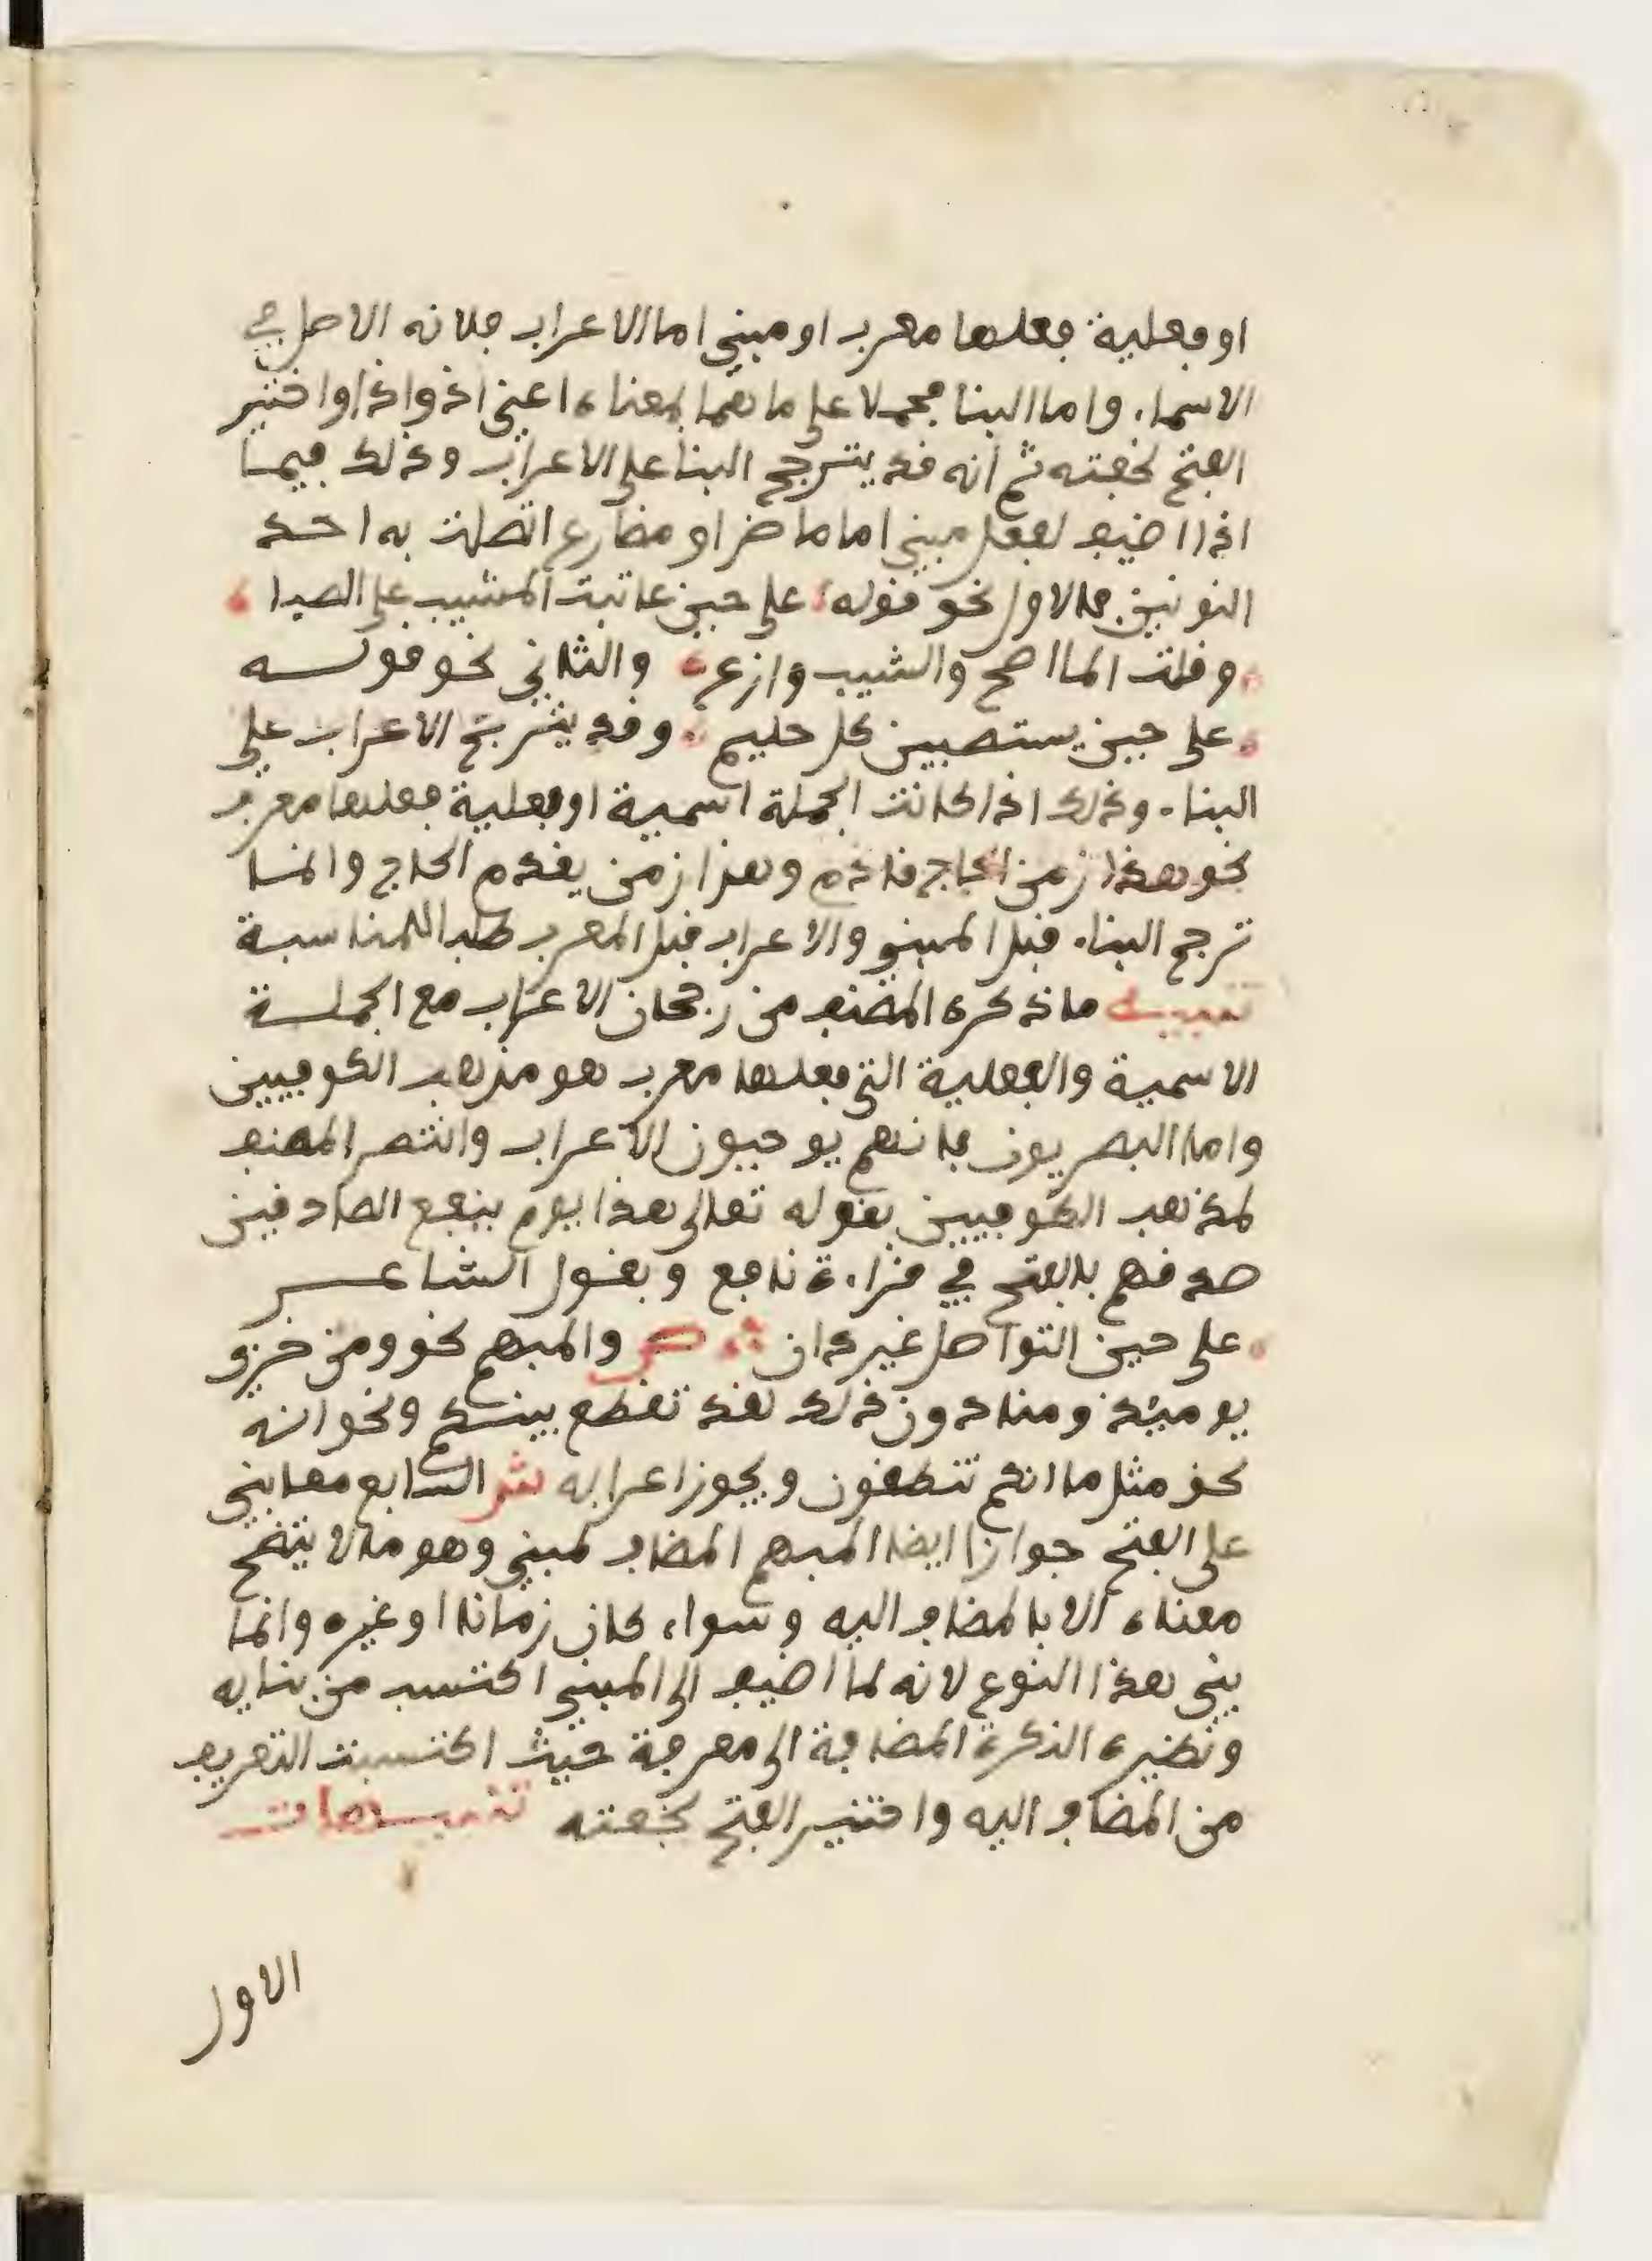 او فعلية فعلها معرب او مبني اما الاعراب فلانه الاصل في
الاسماء واما البنا فحملا على ما هما بمعناه اعني اذ واذا واختير
الفتح لخفته ثم انه قد يترجح البنا على الاعراب وذلك فيما
اذا اضيف لفعل مبني اما ماض او مضارع اتصلت به احد
النونين فالاول نحو قوله على حين عاتبت المشيب على الصبا
وقلت الما اصح والشيب وازع والثاني نحو قولـــه
على حين يستصبين كل حليم وقد يترجح الاعراب على
البناء وذلك اذا كانت الجملة اسمية او فعلية فعلها معرب
نحو هذا زمن الحاج قادم وهذا زمن يقدم الحاج وانما
ترجح البناء قبل المبني والاعراب قبل المعرب طلبا للمناسبة
تنبيه ما ذكره المصنف من رجحان الاعراب مع الجملـة
الاسمية والفعلية التي فعلها معرب هو مذهب الكوفيين
واما البصريون فانهم يوجبون الاعراب وانتصر المصنف
لمذهب الكوفيين بقوله تعالى هذا يوم ينفع الصادقين
صدقهم بالفتح في قراءة نافع وبقول الشاعـــر
على حين التواصل غير دان ص والمبهم نحو ومن خزي
يومئذ ومنا دون ذلك لقد تقطع بينكم ونحو انه
لحق مثل ما انكم تنطقون ويجوز اعرابه ش السابع مما بني
على الفتح جوازا ايضا المبهم المضاف لمبني وهو ما لا يتضح
معناه الا بالمضاف اليه وسواء كان زمانا او غيره وانما
بني هذا النوع لانه لما اضيف الى المبني اكتسب من بنايه
ونظيره النكرة المضافة الى معرفة حيث اكتسبت التعريف
من المضاف اليه واختير الفتح لخفته تنبيـــهات
الاول